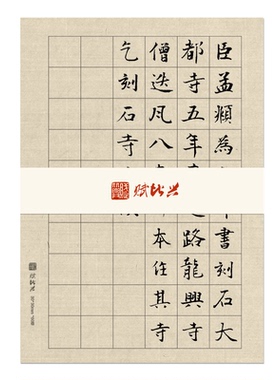 臣孟頫為
書刻石大
都寺五年
路龍興寺
僧迭凡八
本住其寺
乞刻石寺
賦比兴